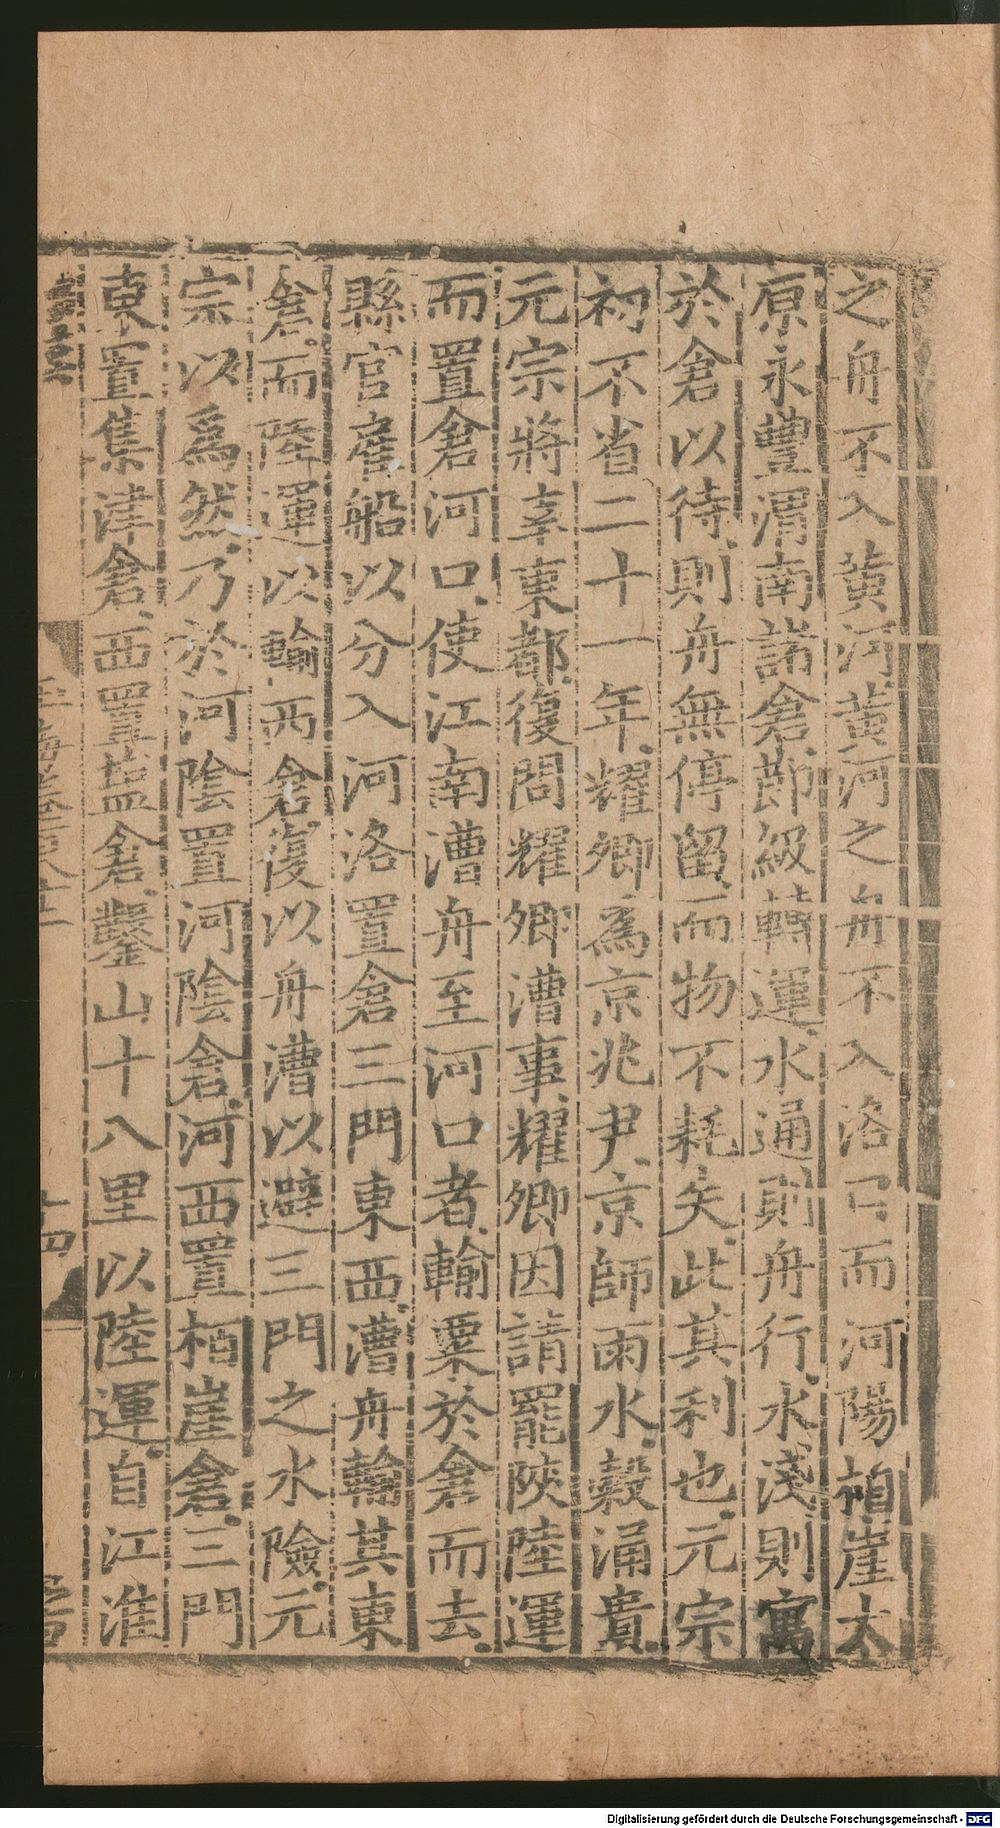 之舟不入黃河黃河之舟不入洛口而河陽柏崖太
原永豐渭南諸倉節級轉運水通則舟行水淺則寓
於倉以待則舟無停留而物不耗失此其利也元宗
初不省二十一年耀卿爲京兆尹京師雨水穀涌貴
元宗將幸東都復問耀卿漕事耀卿因請罷陝陸運
而置倉河口使江南漕舟至河口者輸粟於倉而去
縣官雇船以分入河洛置倉三門東西漕舟輸其東
倉而陸運以輸西倉復以舟漕以避三門之水險元
宗以爲然乃於河陰置河陰倉河西置栢崖倉三門
東置集津倉西置塩倉鑿山十八里以陸運自江淮
十四
Digitalisierung gefördert durch die Deutsche Forschungsgemeinschaft - DFG